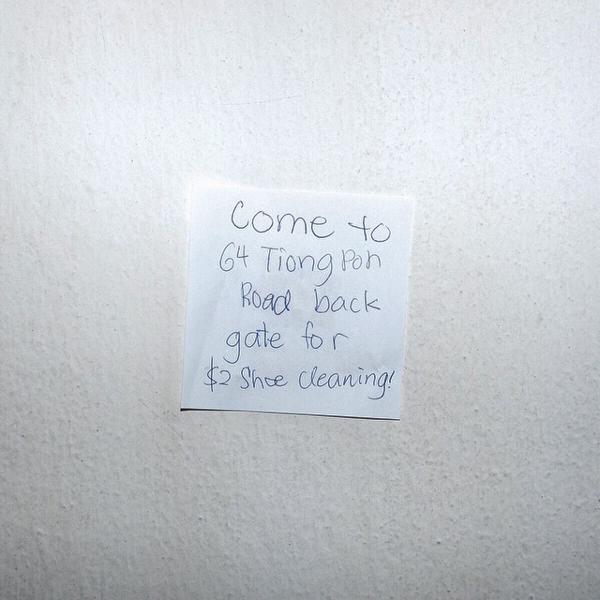 Come to
64 Tiong Poh
Road back
gate for
$2 Shoe cleaning!